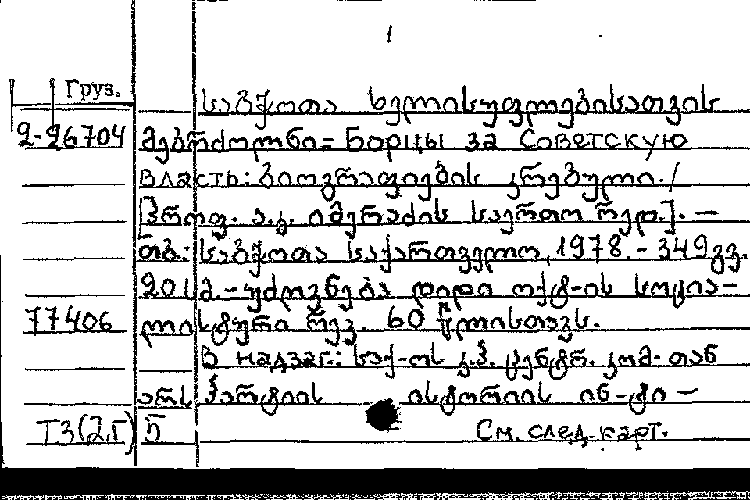 1
Груз.
საბჭოთა ხელისუფლებისათვის
2-26704 მებრძოლნი = Борцы за Советскую
власть: ბიოგრაფიების კრებული. /
[პროფ. ა.კ. იმერაძის საერთო რედ.]. —
თბ.: საბჭოთა საქართველო, 1978. - 349 გვ.
20 სმ. - უძღვნება დიდი ოქტ-ის სოცია-
77406 ლისტური რევ. 60 წლისთავს.
В надзаг.: საქ-ოს კ.პ. ცენტრ. კომ-თან
არს პარტიის ისტორიის ინ-ტი —
Т3(2Г) 5 См. след. карт.